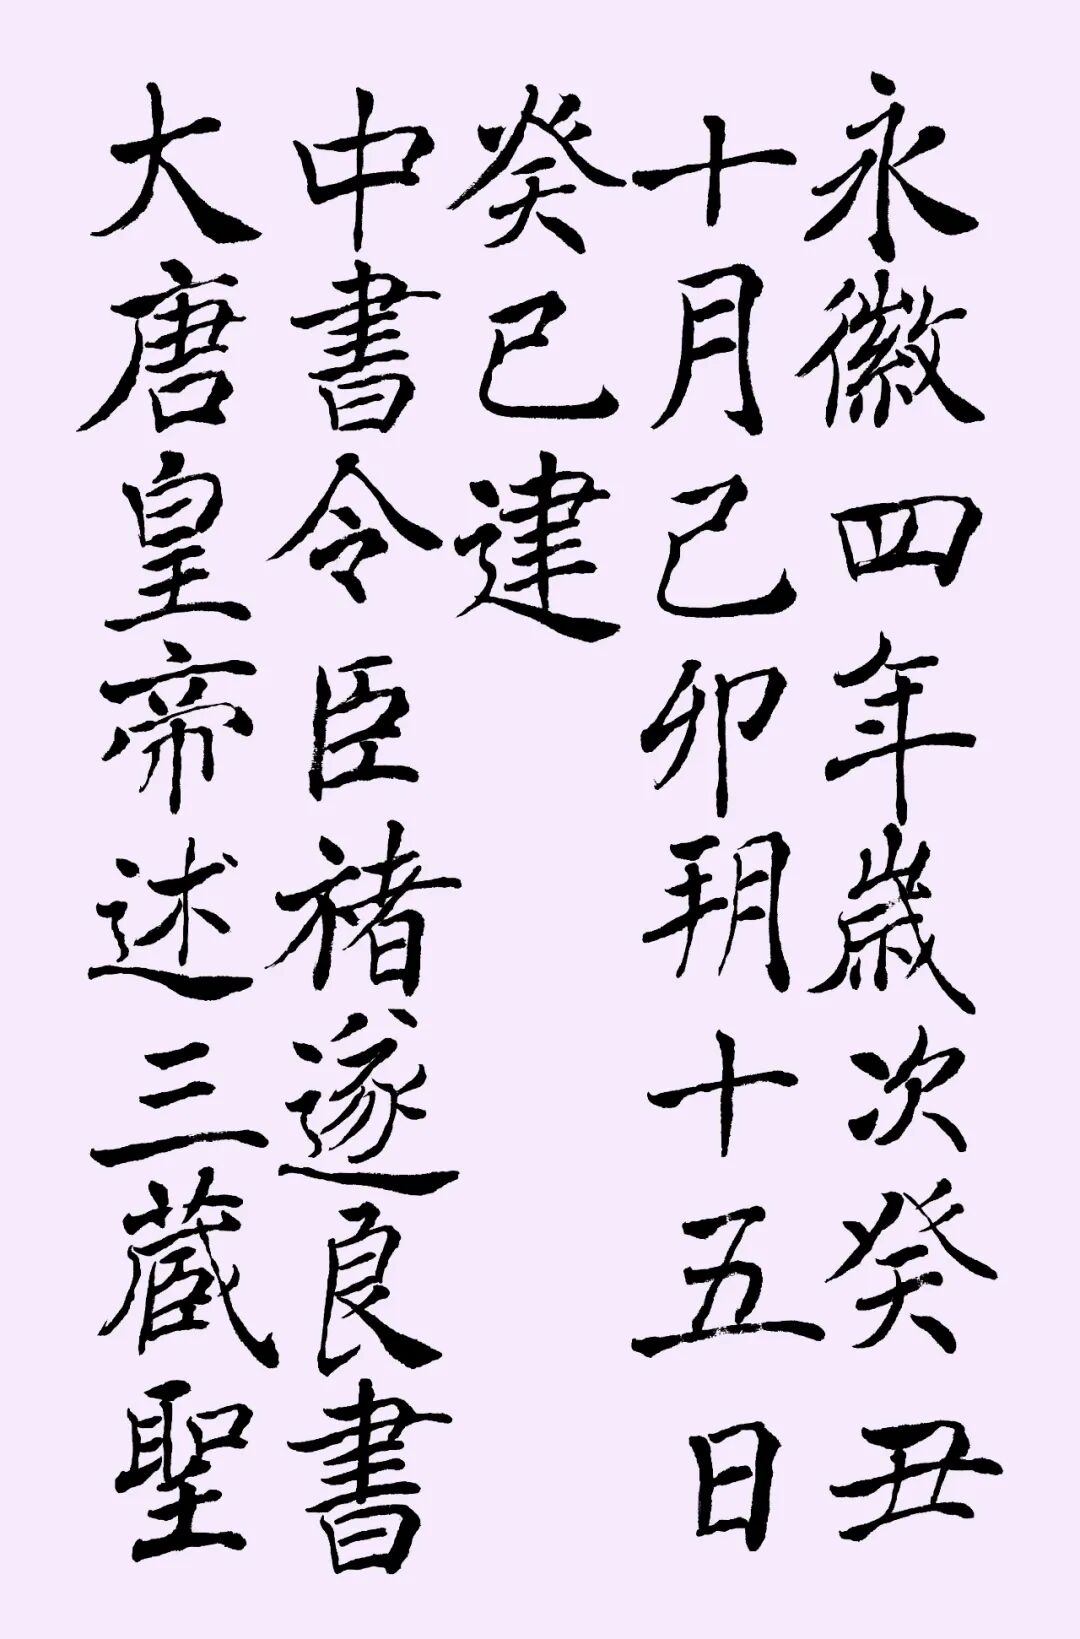 永徽四年歲次癸丑
十月己卯朔十五日
癸巳建
中書令臣褚遂良書
大唐皇帝述三藏聖